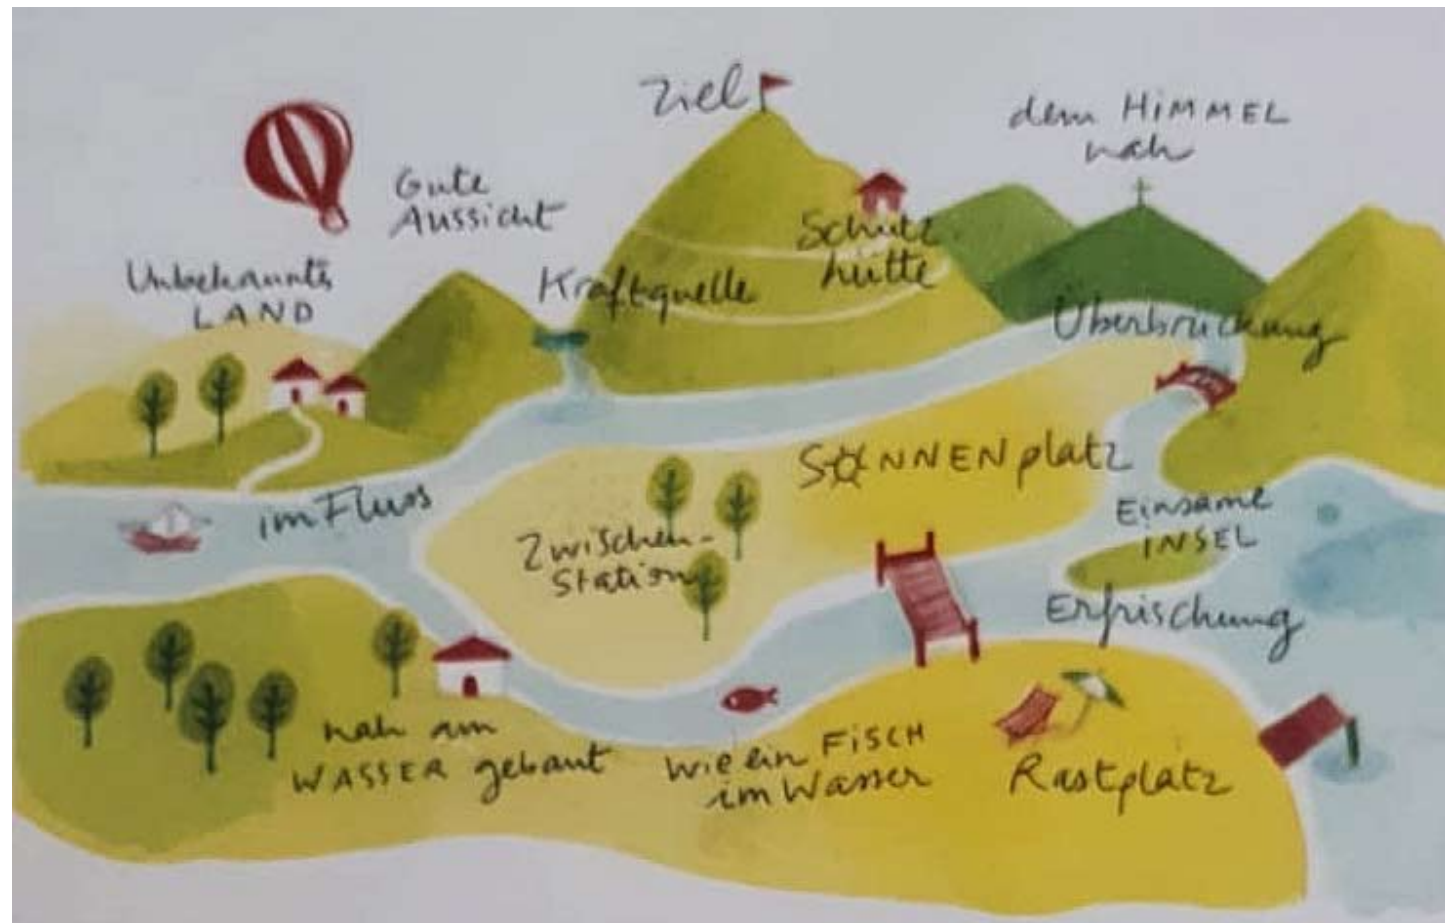 Ziel
dem HIMMEL
nah
Gute
AUSSICHT
Unbekanntes
LAND
Kraftquelle
Schutz
hütte
Überbrückung
SONNENplatz
im Fluss
Zwischen-
Station
Einsame
INSEL
Erfrischung
nah am
WASSER gebaut
wie ein FISCH
im Wasser
Rastplatz